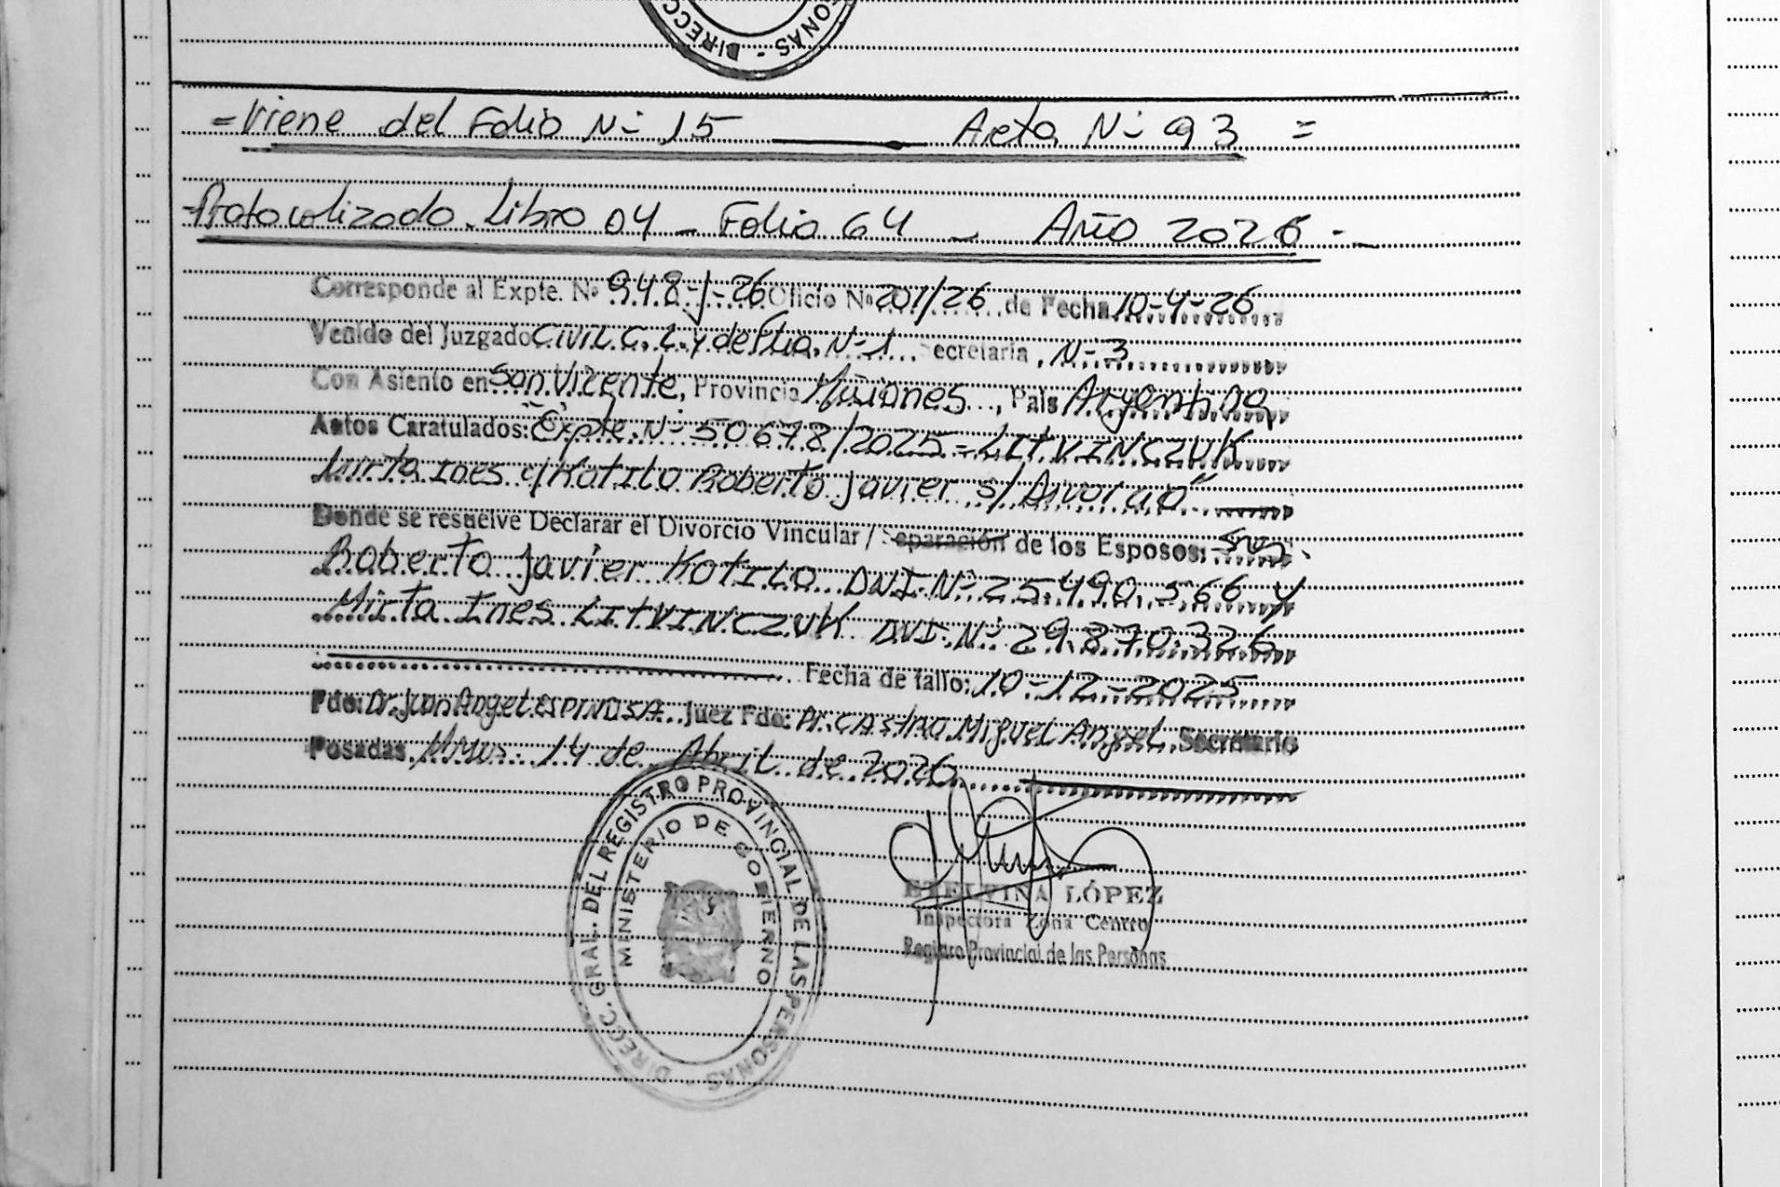 DIRECC - ONAS
=Viene del Folio N- 15 — Acta N- 93 =
-Protocolizado. Libro 04 - Folio 64 - Año 2026.-
Corresponde al Expte. Nº 948-J-26 Oficio Nº 201/26 de Fecha 10-4-26
Venido del Juzgado Civil C. L. y de Flia. N-1 Secretaria, N-3
Con Asiento en San Vicente, Provincia Misiones, País Argentina
Autos Caratulados: "Expte. N- 50678/2025 = LITVINCZUK
Mirta Ines c/ Katilo Roberto Javier s/ Divorcio"
Donde se resuelve Declarar el Divorcio Vincular / Separación de los Esposos:
Roberto Javier Kotilo DNI. N- 25.490.566 y
Mirta Ines LITVINCZUK DNI. N- 29.870.326
Fecha de fallo: 10-12-2025
Fdo: Dr. Juan Angel ESPINOSA. Juez Fdo: Dr. CAstro Miguel Angel, Secretario
Posadas, Mnes. 14 de Abril de 2026
DIRECC. GRAL. DEL REGISTRO PROVINCIAL DE LAS PERSONAS -
MINISTERIO DE GOBIERNO
LÓPEZ
Inspectora Zona Centro
Registro Provincial de las Personas